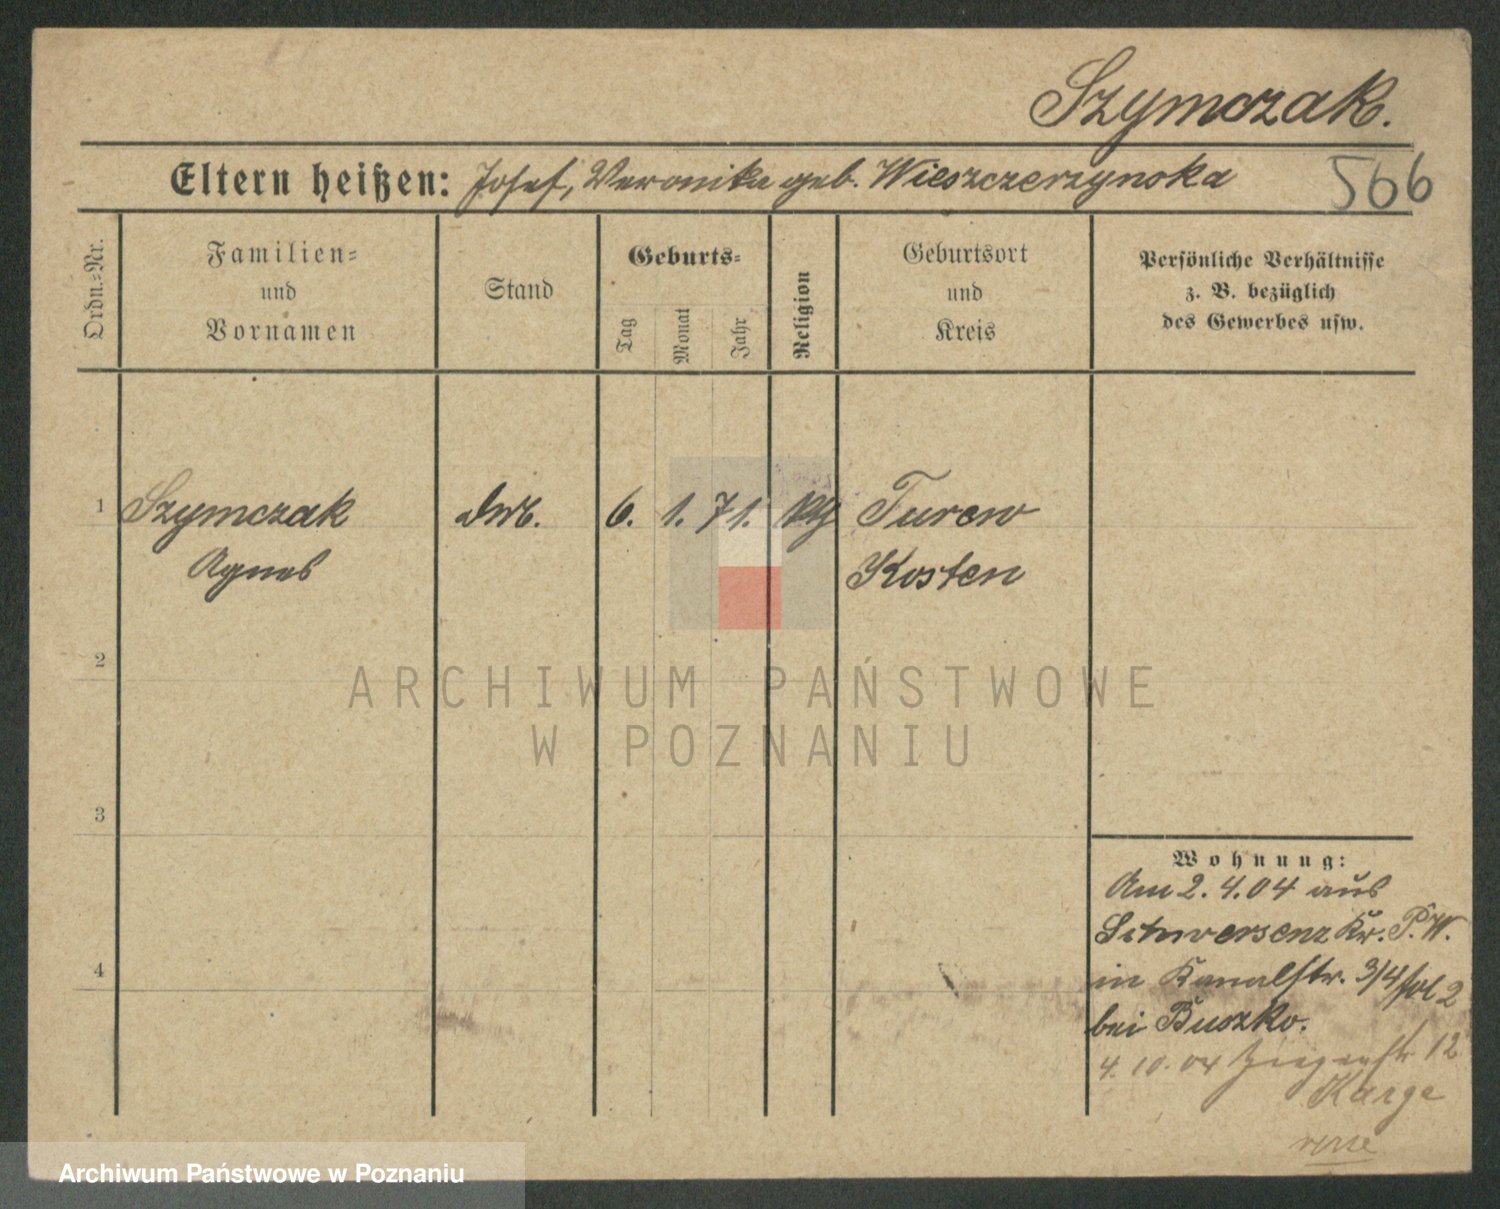 Szymczak.
Eltern heißen: Josef, Veronika geb. Wieszczerzynska 566
Ordn.-Nr.
Familien-
und
Vornamen
Stand
Geburts-
Tag
Monat
Jahr
Religion
Geburtsort
und
Kreis
Persönliche Verhältnisse
z. B. bezüglich
des Gewerbes usw.
1 Szymczak 6. 1. 71. Turew
Agnes Kosten
2
ARCHIWUM PAŃSTWOWE
W POZNANIU
3
Wohnung:
Am 2.4.04 aus
Schwersenz Kr. P.W.
4
in Kanalstr. 3/4 2
bei Buszko.
4.10.04 Ziegenstr 12
Karge
Archiwum Państwowe w Poznaniu